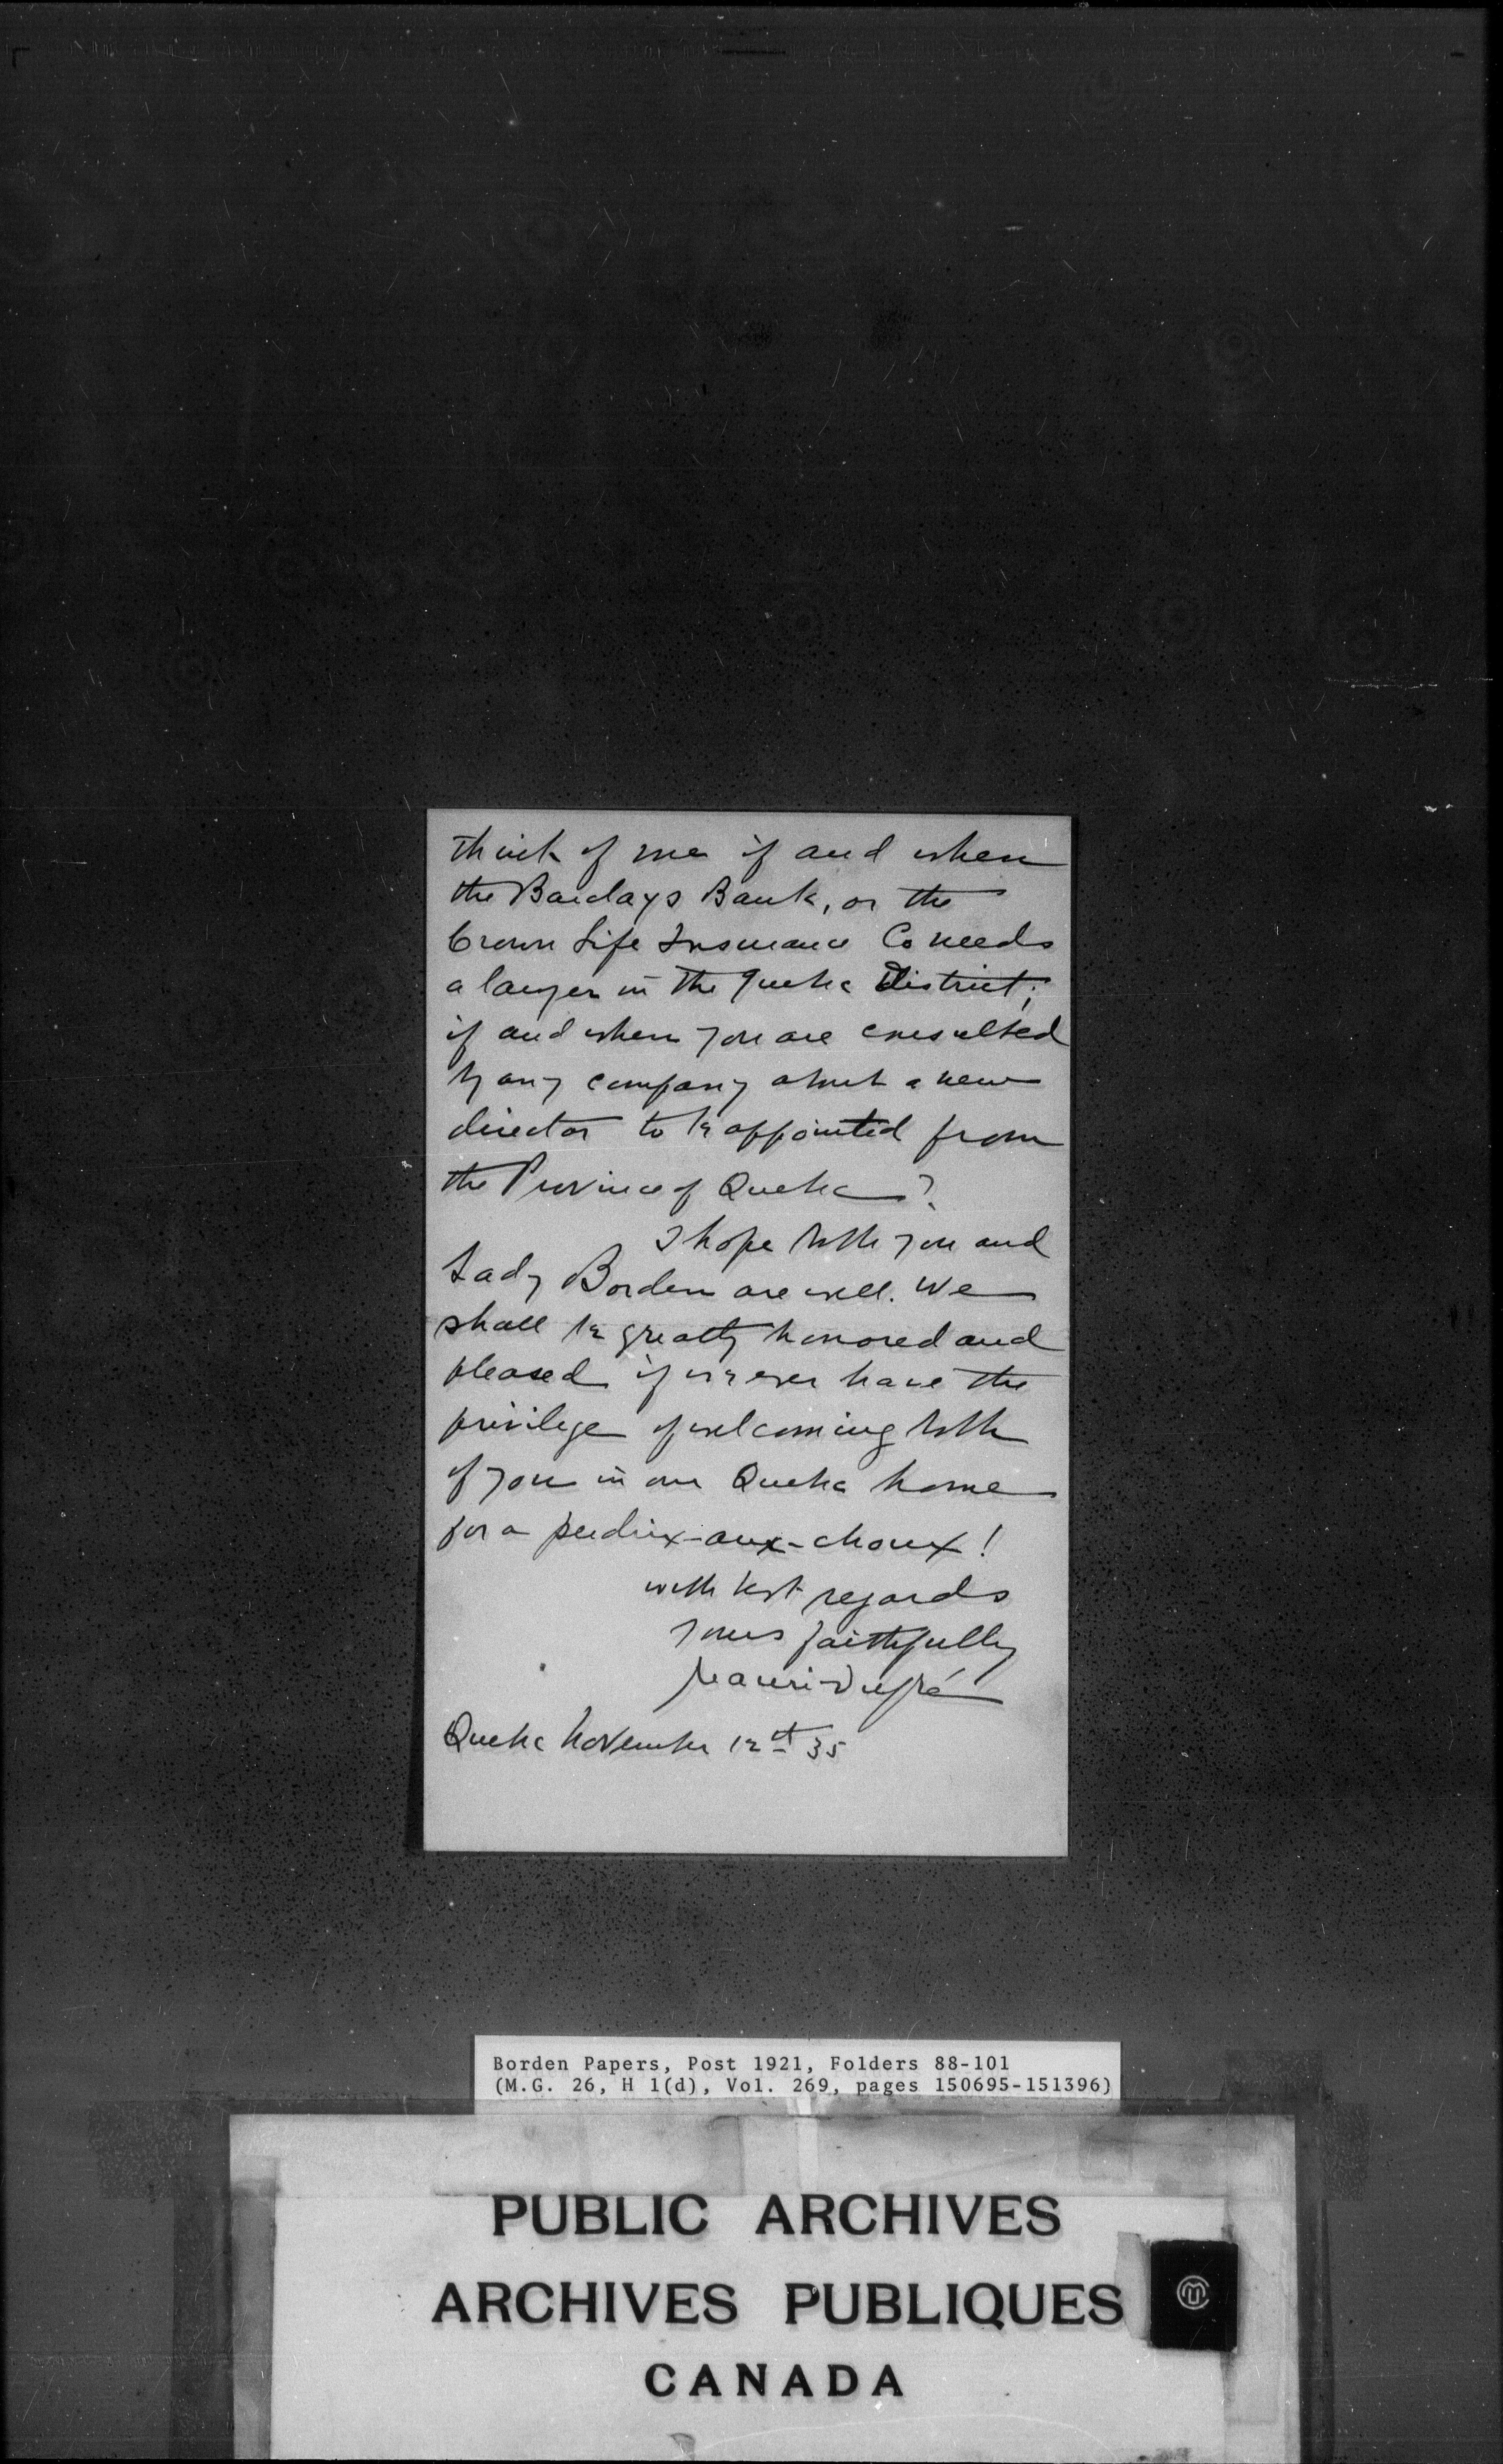 think of me if and when
the Barclays Bank, or the
Crown Life Insurance Co needs
a lawyer in the Quebec District;
if and when you are consulted
by any company about a new
director to be appointed from
the Province of Quebec?
I hope both you and
Lady Borden are well. We
shall be greatly honored and
pleased if we ever have the
privilege of welcoming both
of you in our Quebec home
for a perdrix-aux-choux!
with best regards
yours faithfully
Maurice Dupré
Quebec November 12th 35
Borden Papers, Post 1921, Folders 88-101
(M.G. 26, H 1(d), Vol. 269, pages 150695-151396)
PUBLIC ARCHIVES
ARCHIVES PUBLIQUES
CANADA